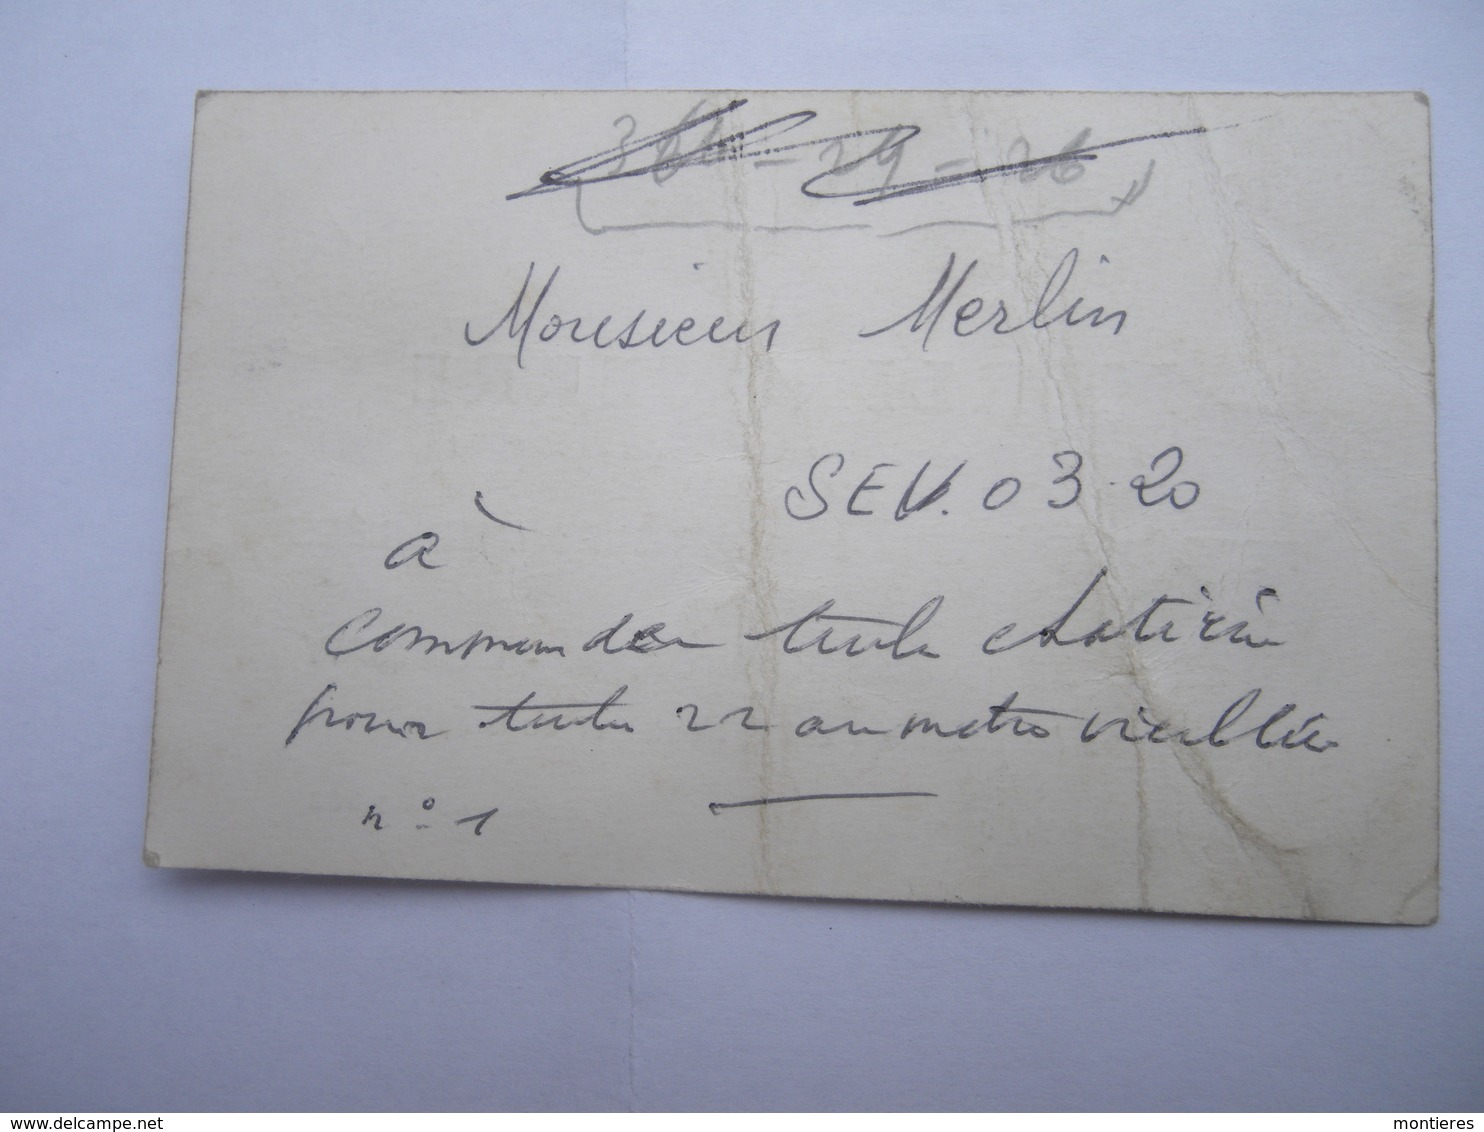 364-29-26
Monsieur Merlin
SEV. 03-20
à
commander
pour 22 au metro
n° 1
delcampe.net
montieres